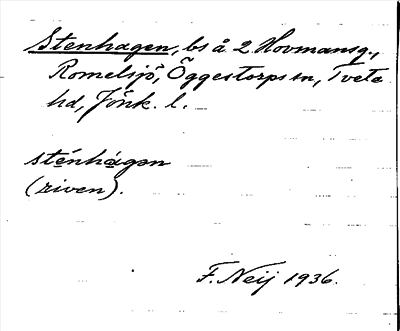 Stenhagen, bs å 2 Hovmansg.,
Romelsjö, Öggestorps sn, Tveta
hd, Jönk. l.
sténhàgən
(riven).
F. Neij 1936.